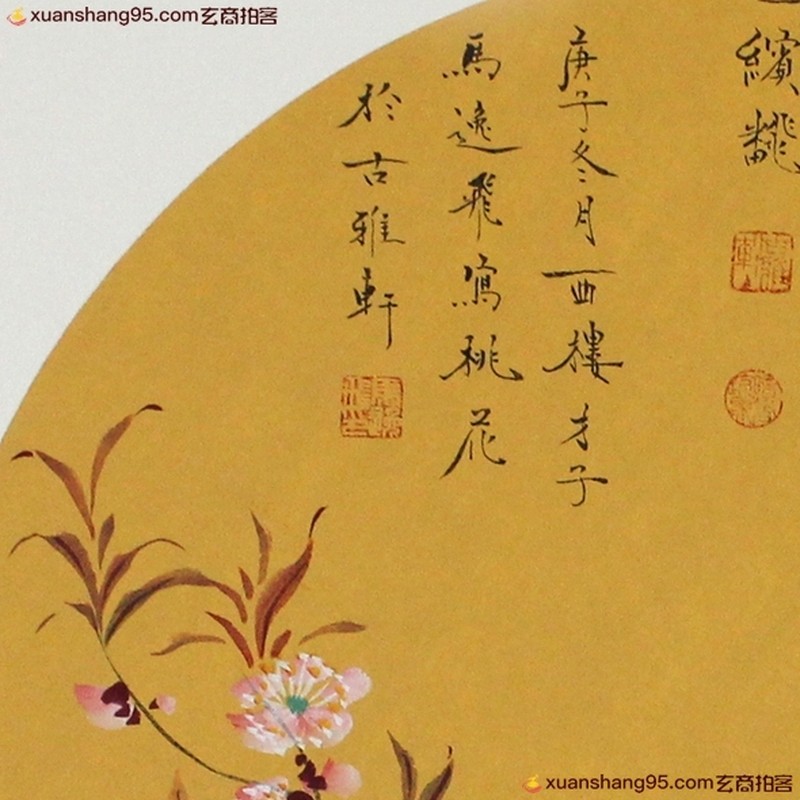 xuanshang95.com玄商拍客
繽飜
庚子冬月西樓才子
馬逸飛寫桃花
於古雅軒
xuanshang95.com玄商拍客